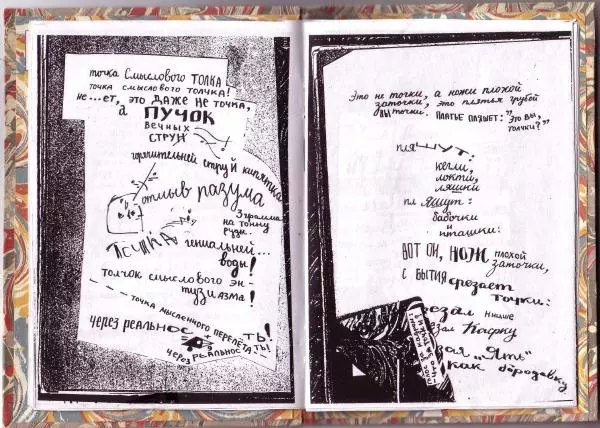 точка Смыслового ТОЛКА
точка смыслового толчка!
не...ет, это даже не точка,
а ПУЧОК
вечных
струн
горячительней струй кипятка
отлыв разума
3 грамма
на тонну
руды.
гениальней...
воды!
толчок смыслового эн-
тузиазма!
точка мысленного перелёта
через реальнос ТЬ!
через реальнос ТЬ!
Это не точки, а ножи плохой
заточки, это платья грубой
выточки. Платье пляшет: "Это вы,
толчки?"
пляшут:
кегли,
локти,
ляшки
пляшут:
бабочки
и
пташки:
вот он, нож плохой
заточки,
с бытия срезает
точки:
резал Ницше
зал Кафку
"Ять"
как бородавку